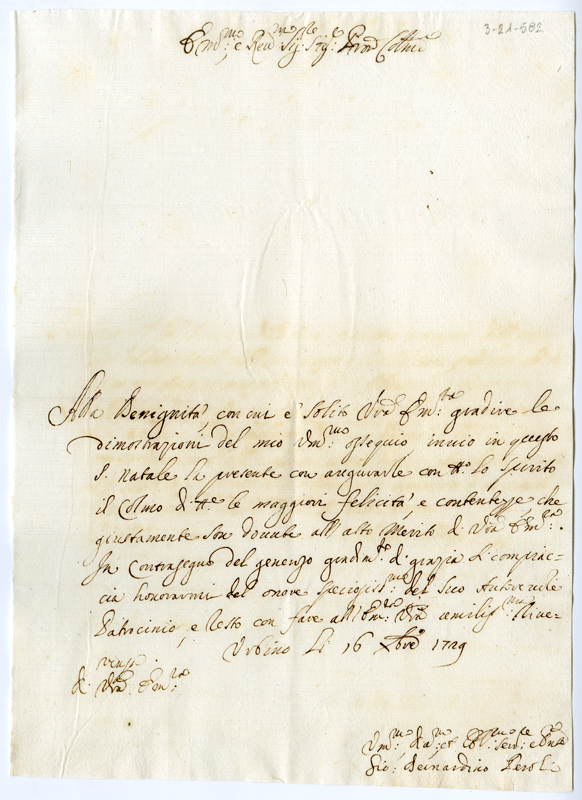 3-21-582
Em:mo e Rev:mo Sig: Sig:e Pron Colmo
Alla Benignità, con cui è solito Vra Em:za gradire le
dimostrazioni del mio Um:mo ossequio invio in questo
S. Natale la presente con augurarle con tt:o lo spirito
il Colmo di tt:e le maggiori felicità, e contentezze, che
giustamente son dovute all'alto Merito di Vra Em:za.
In Contrasegno del generoso gradim:to di grazia si compiac-
cia honorarmi del onore speciosiss:mo del suo
Patrocinio, e resto con fare all'Em:za Vra umiliss:ma River-
renza.
Urbino Li 16 Xbre 1729
di Vra Em:za
Um:mo
Gio: Bernardino Peroli